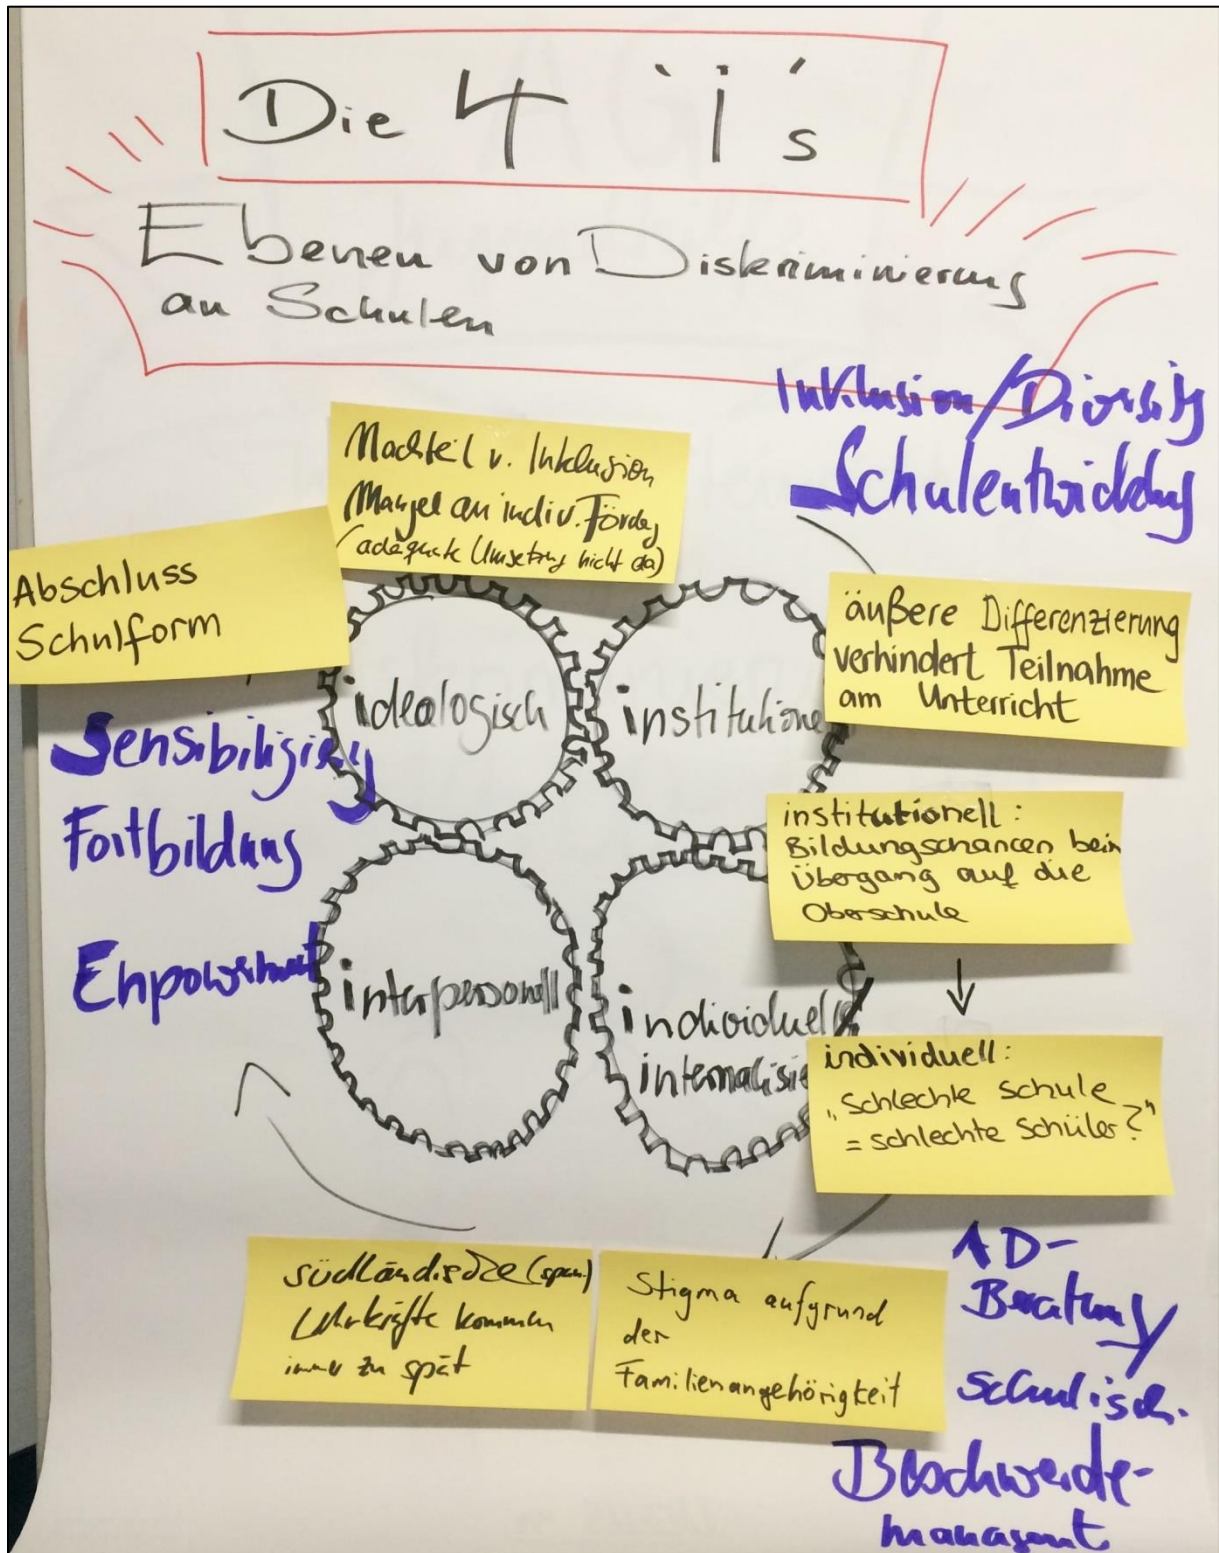 Die 4 i's
Ebenen von Diskriminierung
an Schulen
Inklusion/Diversity
Schulentwicklung
Nachteil v. Inklusion
Mangel an indiv. Förderg
(adäquate Umsetzung nicht da)
Abschluss
Schulform
äußere Differenzierung
verhindert Teilnahme
am Unterricht
idealogisch
institutione
Sensibilisierg
Fortbildung
Empowerment
institutionell:
Bildungschancen beim
Übergang auf die
Oberschule
interpersonell
individuell/
internalisie
individuell:
„schlechte Schule
= schlechte Schüler?“
südländische (span.)
Lehrkräfte kommen
immer zu spät
Stigma aufgrund
der
Familienangehörigkeit
AD-
Beratung/
schulisch.
Beschwerde-
managemt